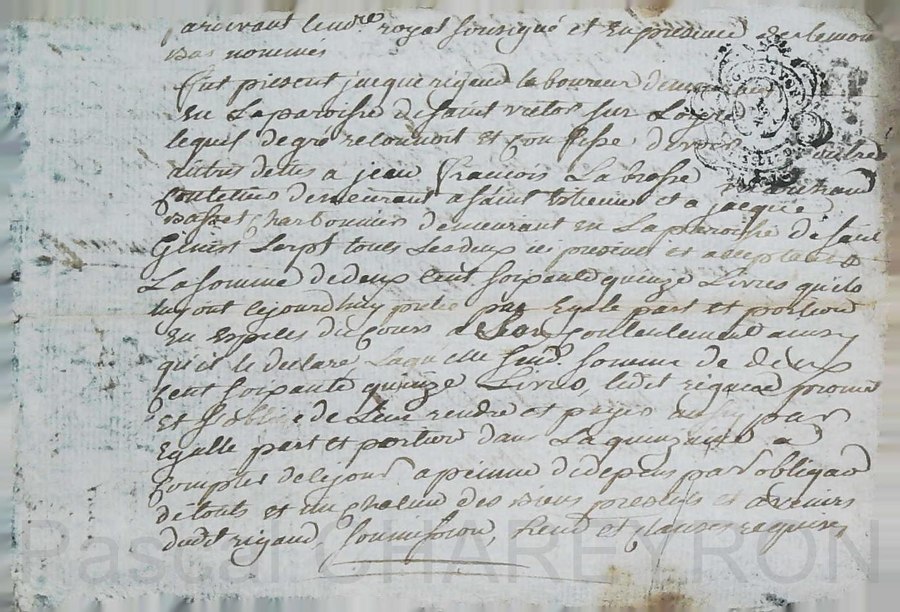 pardevant le no.re royal soussigné et en presence des temoins
bas nommés
fut present jacque rigaud laboureur demeurant
en la paroisse de saint victor sur Loyre
lequel de gré reconnoit et confesse devoir
autres dettes a jean francois Labrosse marchand
coutellier demeurant a saint Etienne et a jacque
charbonnier demeurant en La paroisse de saint
Genest Lerpt tous Les deux icy presents et acceptants
La somme de deux cent soixante quinze Livres qu'ils
luy ont cejourd'huy pretée par Egale part et portion
en especes du cours a son contentement ainsy
qu'il le declare Laquelle susd. somme de deux
cent soixante quinze Livres, ledit rigaud promet
et s'oblige de Leur rendre et payer par
Egalle part et portion dans La quinzaine a
compter de ce jour a peinne de depens par obligaon
de touts et un chacun des biens presents et avenirs
dudit rigaud soumission, renon et clauses requises
Pascal CHAREYRON